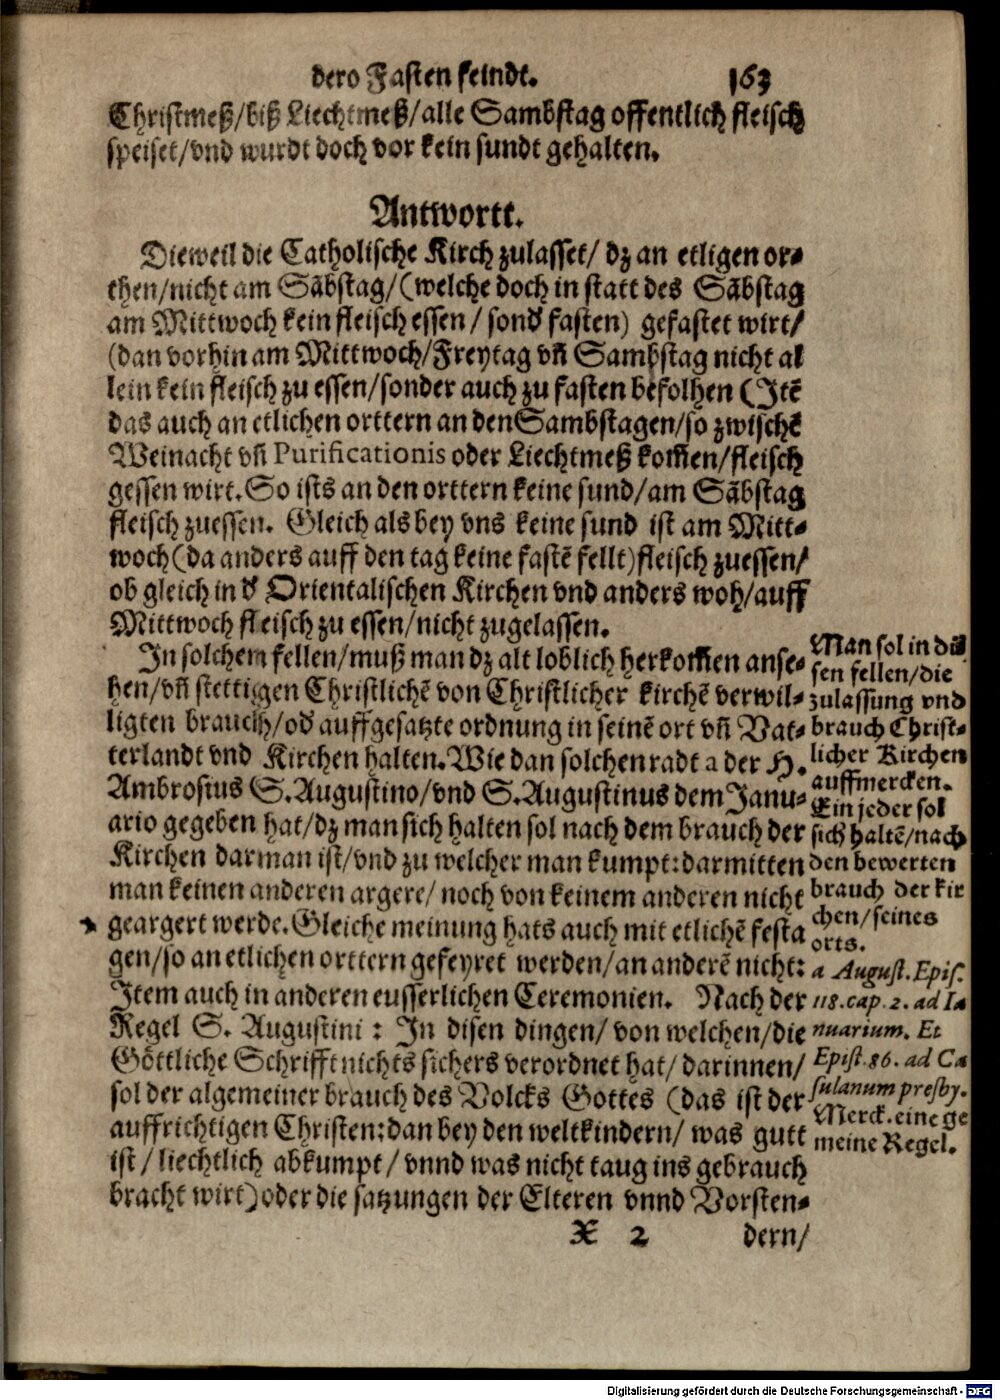 dero Fasten feindt. 163
Christmeß/biß Liechtmeß/alle Sambstag offentlich fleisch
speiset/vnd wurdt doch vor kein sundt gehalten.
Antwortt.
Dieweil die Catholische Kirch zulasset/ dz an etligen or-
then/nicht am Sābstag/(welche doch in statt des Sābstag
am Mittwoch kein fleisch essen / sond' fasten) gefastet wirt/
(dan vorhin am Mittwoch/Freytag vn̄ Sambstag nicht al
lein kein fleisch zu essen/sonder auch zu fasten befolhen (Itē
das auch an etlichen orttern an den Sambstagen/so zwischē
Weinacht vn̄ Purificationis oder Liechtmeß kom̄en/fleisch
gessen wirt. So ists an den orttern keine sund/am Sābstag
fleisch zuessen. Gleich als bey vns keine sund ist am Mitt-
woch(da anders auff den tag keine fastē fellt)fleisch zuessen/
ob gleich in d' Orientalischen Kirchen vnd anders woh/auff
Mittwoch fleisch zu essen/nicht zugelassen.
In solchem fellen/muß man dz alt loblich herkom̄en anse-
hen/vn̄ stettigen Christlichē von Christlicher kirchē verwil-
ligten brauch/od' auffgesatzte ordnung in seinē ort vn̄ Vat-
terlandt vnd Kirchen halten. Wie dan solchen radt a der H.
Ambrosius S. Augustino/vnd S. Augustinus dem Janu-
ario gegeben hat/dz man sich halten sol nach dem brauch der
Kirchen dar man ist/vnd zu welcher man kumpt: darmitten
man keinen anderen argere/ noch von keinem anderen nicht
geargert werde. Gleiche meinung hats auch mit etlichē festa
gen/so an etlichen orttern gefeyret werden/an anderē nicht:
Item auch in anderen eusserlichen Ceremonien. Nach der
Regel S. Augustini : In disen dingen/ von welchen/die
Göttliche Schrifft nichts sichers verordnet hat/ darinnen/
sol der algemeiner brauch des Volcks Gottes (das ist der
auffrichtigen Christen: dan bey den weltkindern/ was gutt
ist / liechtlich abkumpt/ vnnd was nicht taug ins gebrauch
bracht wirt) oder die satzungen der Elteren vnnd Vorsten-
X 2 dern/
Man sol in di
sen fellen/die
zulassung vnd
brauch Christ-
licher Kirchen
auffmercken.
Ein jeder sol
sich haltē/nach
den bewerten
brauch der kir
chen/seines
orts.
a August. Epis.
118. cap. 2. ad Ia
nuarium. Et
Epist. 86. ad Ca
sulanum presby.
Merck. eine ge
meine Regel.
Digitalisierung gefördert durch die Deutsche Forschungsgemeinschaft - DFG